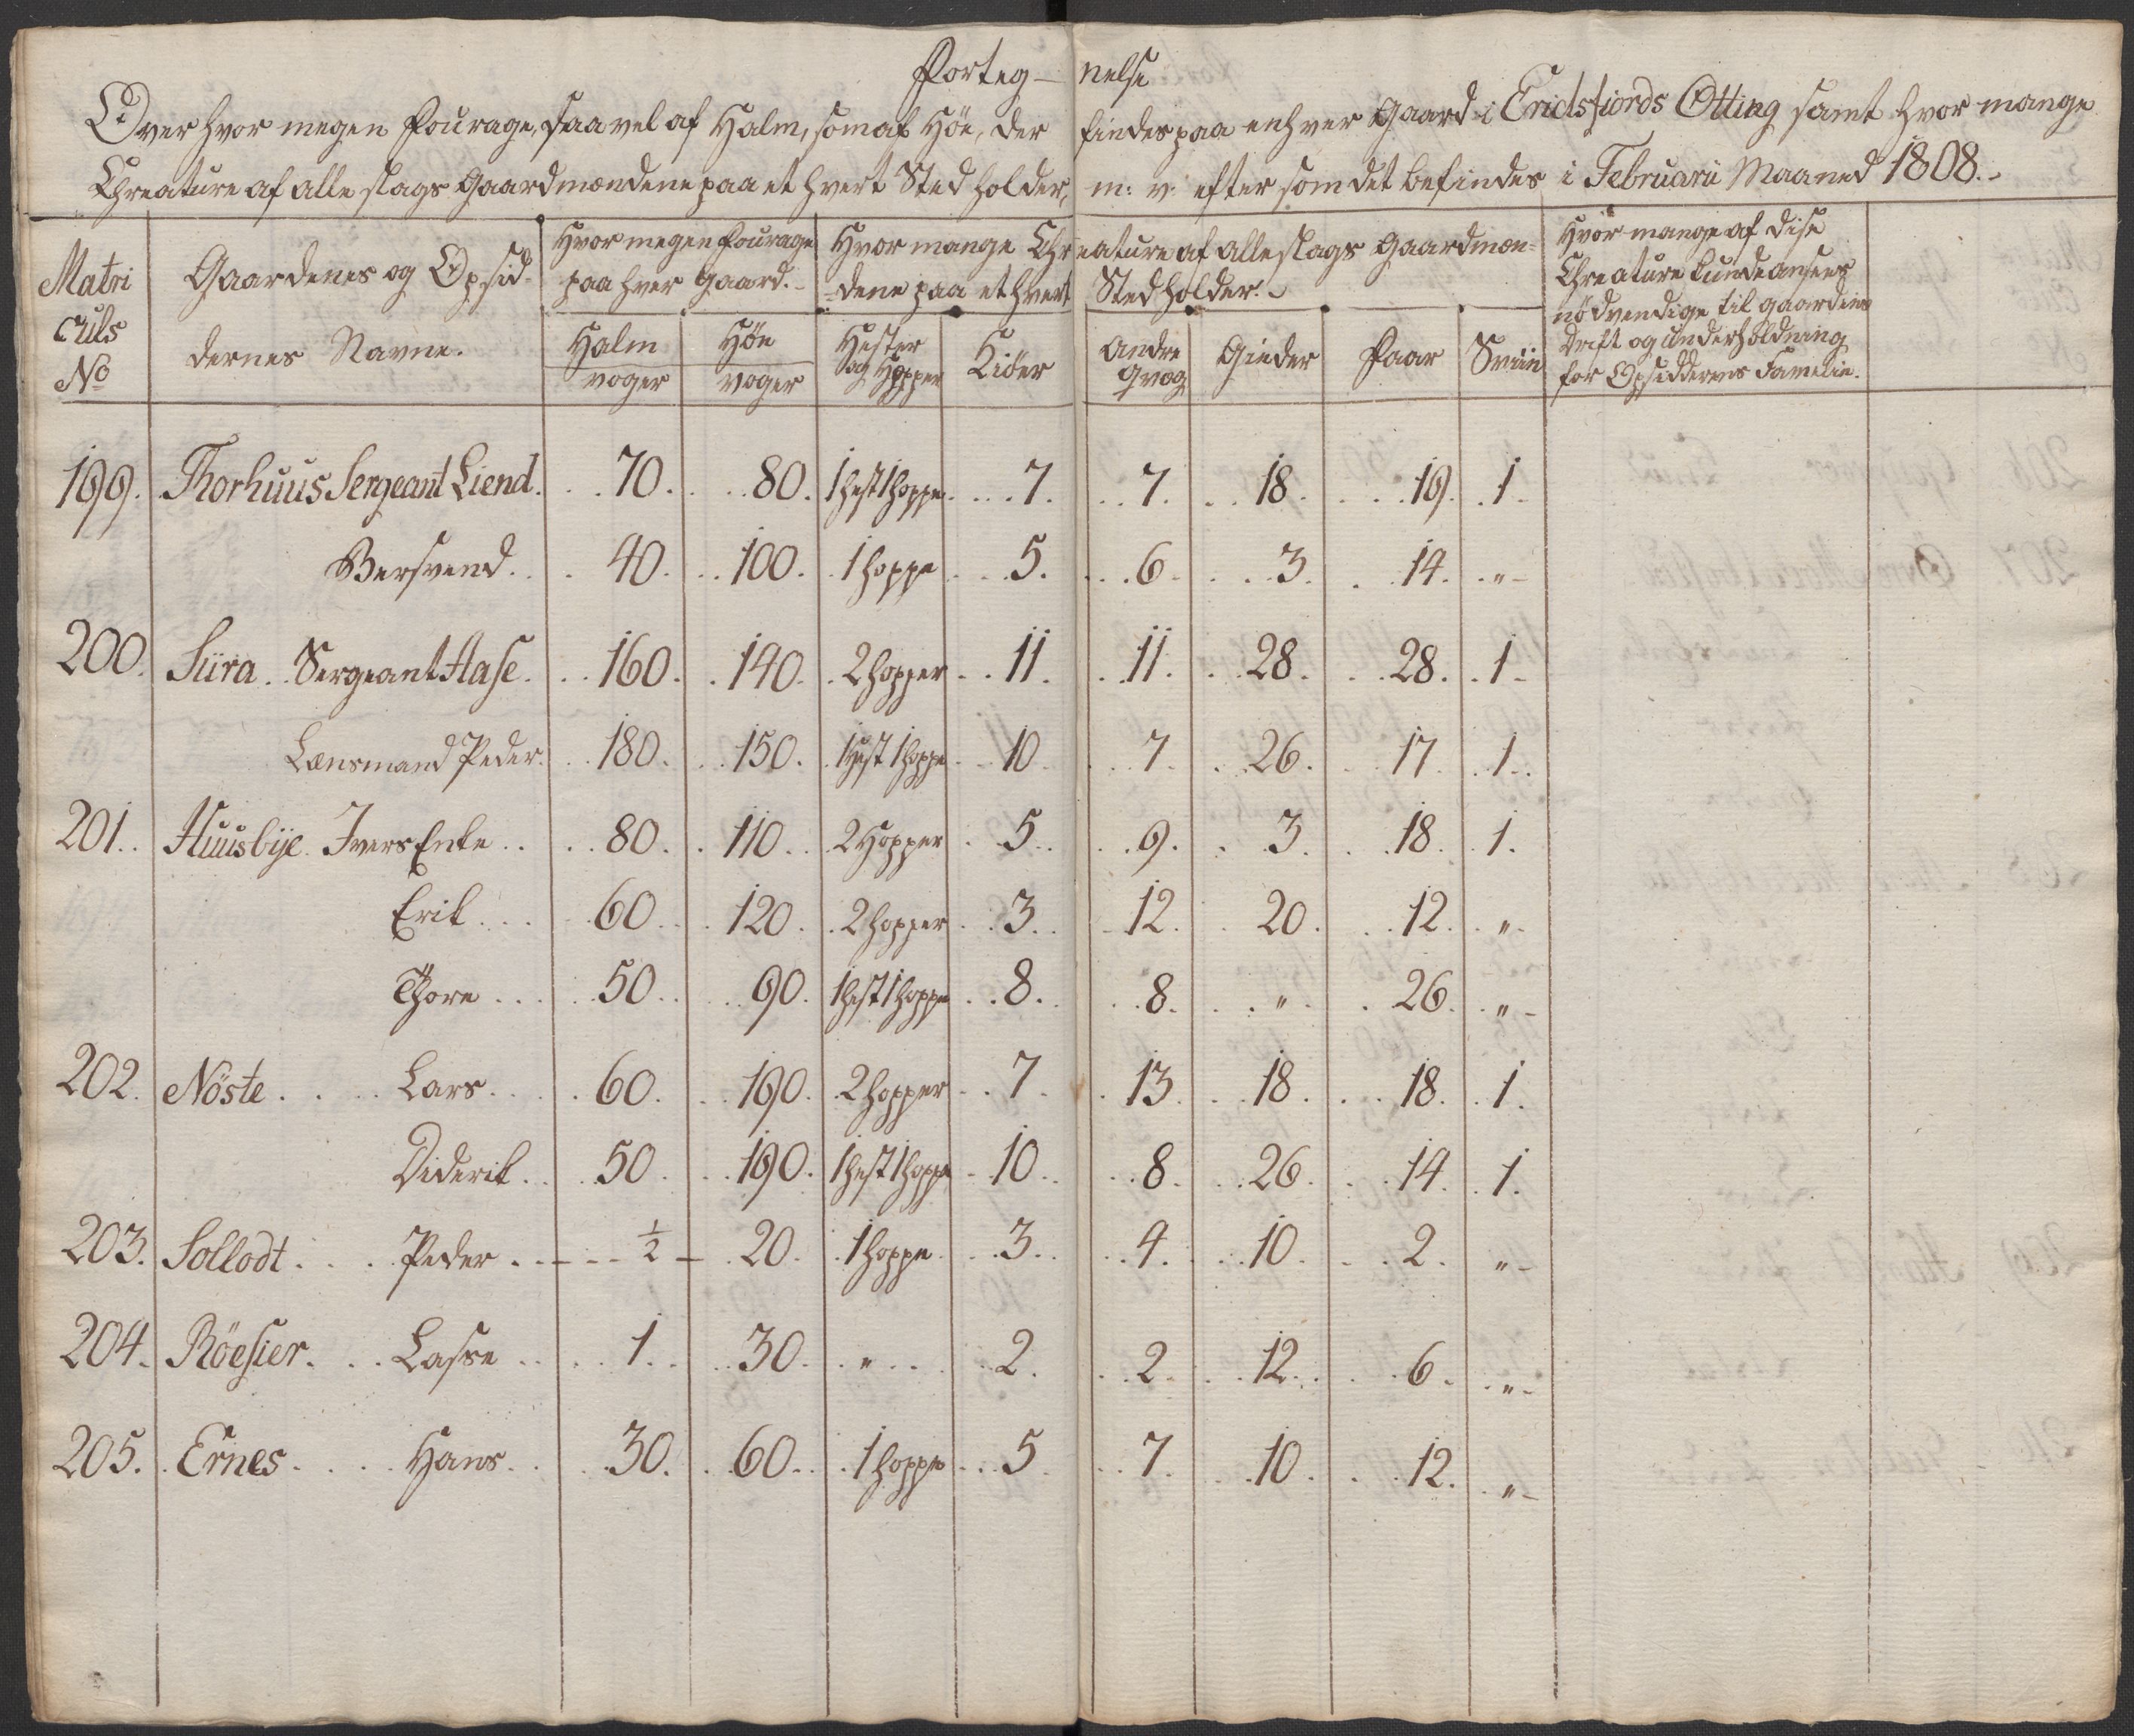 Forteg- nelse
Over hvor megen Fourage, saavel af Halm, som af Höe, der findes paa enhver Gaard i Eridsfiords Otting samt hvor mange
Chreature af alle slags Gaardmændene paa et hvert Sted holder, m: v: efter som det befindes i Februarii Maaned 1808.
Matri culs No
Gaardenes og Opsiddernes Navne.
Hvor megen Fourage paa hver Gaard.
Hvor mange Chreature af alle slags Gaardmændene paa et hvert Sted holder.
Hvor mange af dise Chreature kunde ansees nödvendige til gaardens Drift og underholdning for Opsidderens Familie.
Halm voger
Höe voger
Hester og Hopper
Kiöer
andre Qvæg
Gieder
Faar
Sviin
199. Thorhuus Sergeant Liend. 70. 80. 1 hest 1 hoppe 7. 7. 18. 19. 1.
Bersvend. 40. 100. 1 hoppe 5. 6. 3. 14. "
200. Siira. Sergeant Aase. 160. 140. 2 hopper 11. 11. 28. 28. 1.
Lensmand Peder. 180. 150. 1 Hest 1 hoppe 10. 7. 26. 17. 1.
201. Huusbye. Ivers Enke. 80. 110. 2 Hopper 5. 9. 3. 18. 1.
Erik. 60. 120. 2 hopper 3. 12. 20. 12. "
Thore. 50. 90. 1 hest 1 hoppe 8. 8. " 26. "
202. Nöste. Lars. 60. 190. 2 hopper 7. 13. 18. 18. 1.
Diderik. 50. 190. 1 hest 1 hoppe 10. 8. 26. 14. 1.
203. Sollodt. Peder. 1/2 20. 1 hoppe. 3. 4. 10. 2. "
204. Röesier. Lasse. 1. 30. " 2. 2. 12. 6. "
205. Ernes. Hans. 30. 60. 1 hoppe 5. 7. 10. 12. "